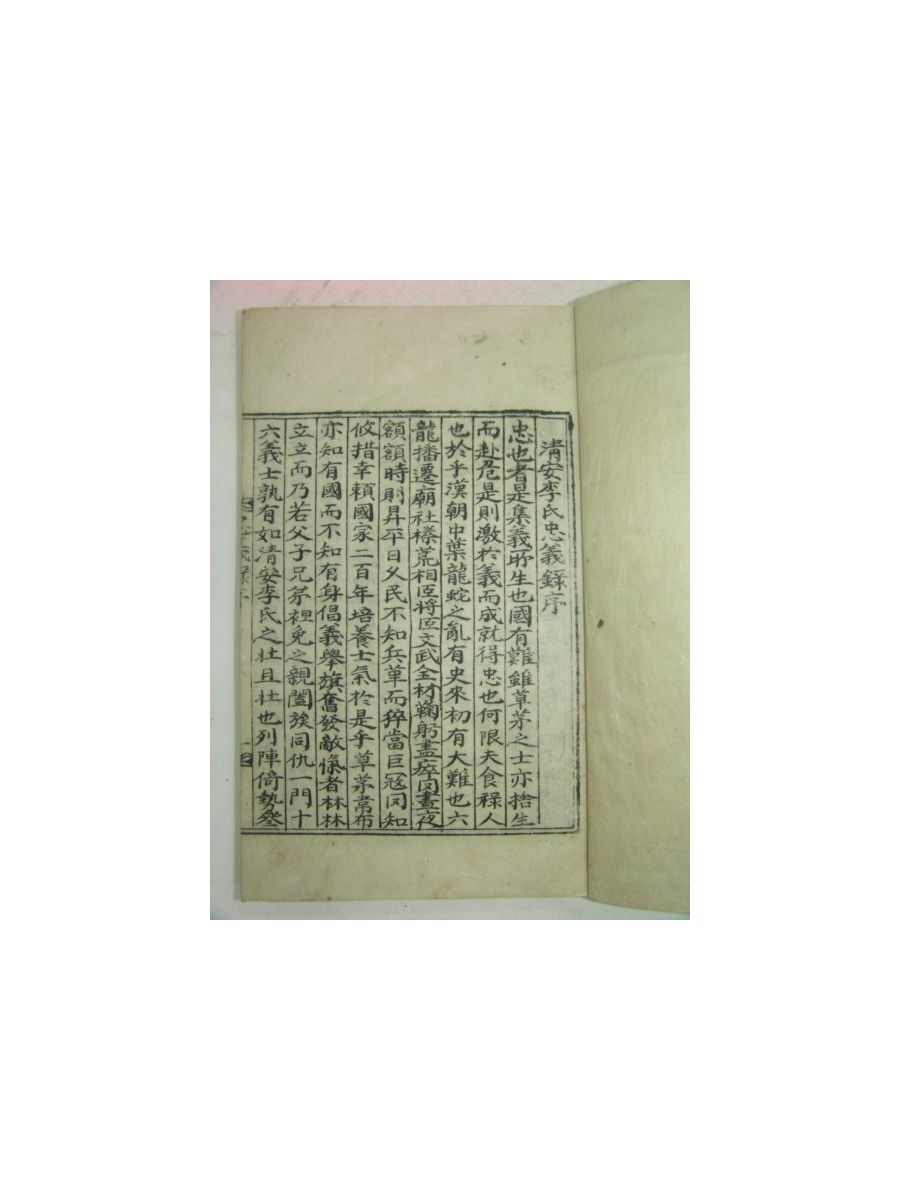 清安李氏忠義錄序
忠也者是集義所生也國有難雖草茅之士亦捨生
而赴危是則激於義而成就得忠也何限夫食祿人
也於乎漢朝中葉龍蛇之亂有史來初有大難也六
龍播遷廟社榛荒相臣將臣文武全材鞠躬盡瘁罔晝夜
額額時則昇平日久民不知兵革而猝當巨寇罔知
攸措幸賴國家二百年培養士氣於是乎草茅韋布
亦知有國而不知有身倡義舉旗奮發敵愾者林林
立立而乃若父子兄弟袒免之親闔族同仇一門十
六義士孰有如淸安李氏之壯且壯也列陣倚勢